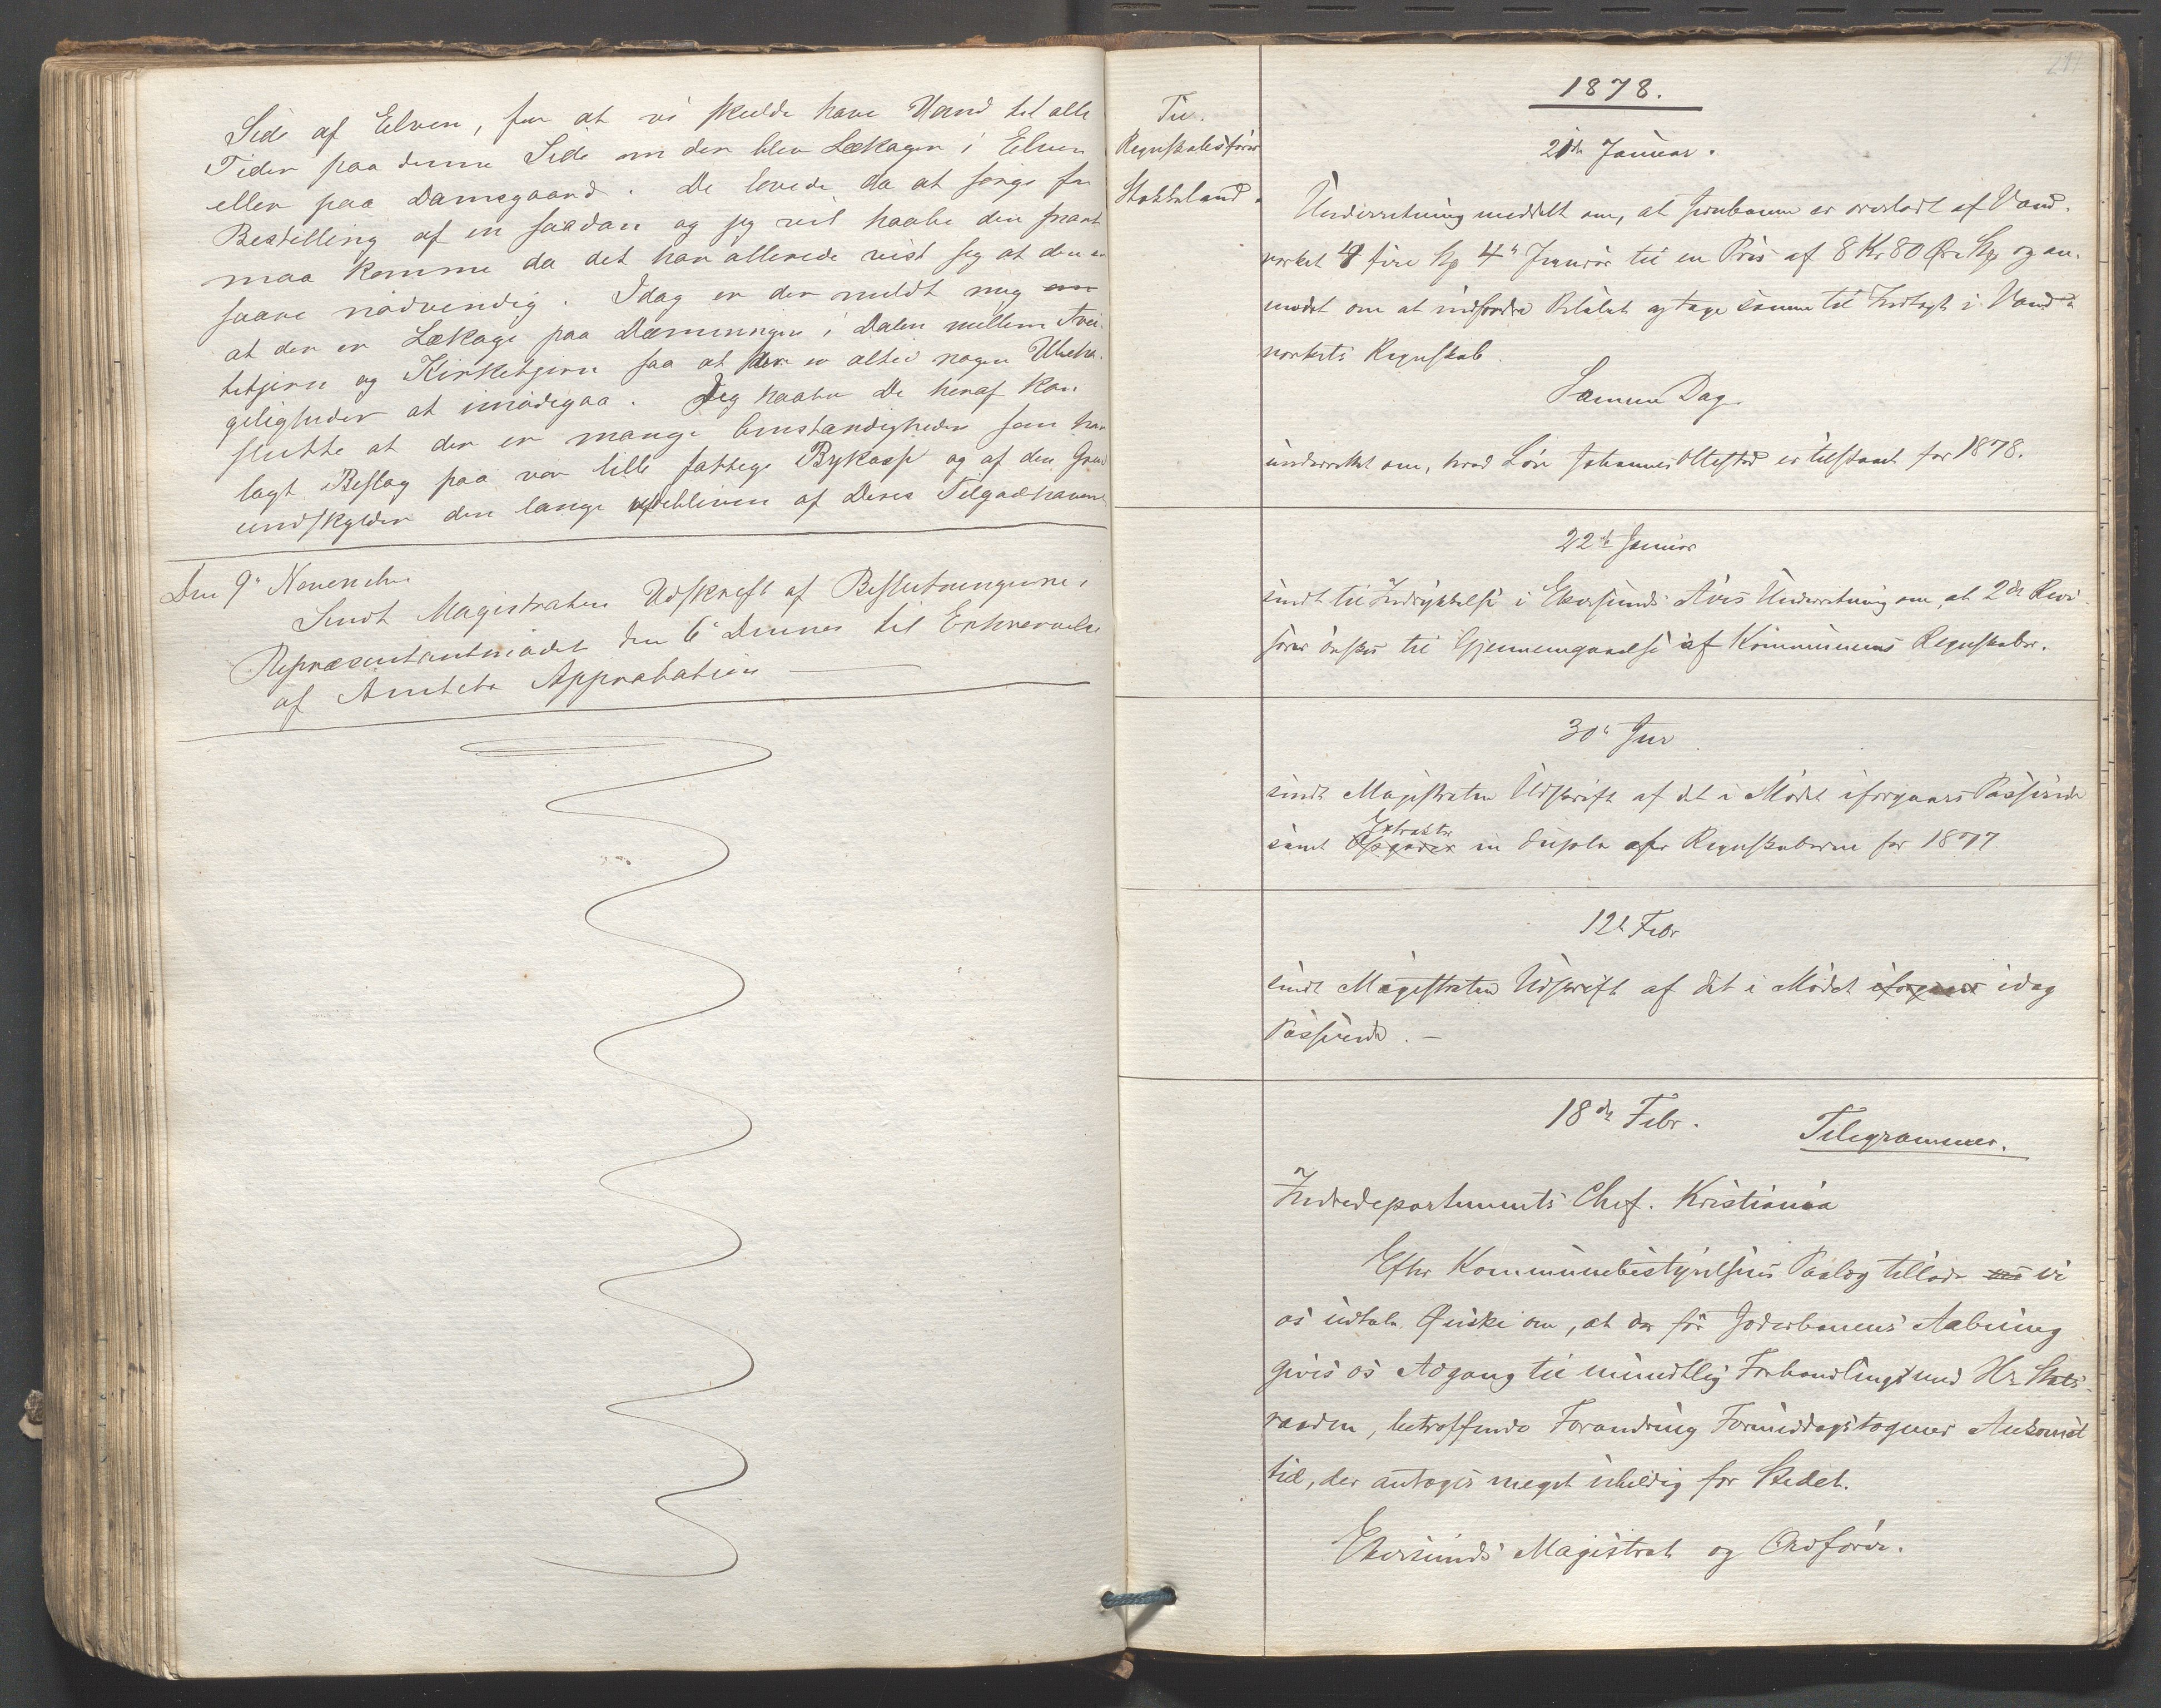 Side af Elven, for at vi skulde have Vand til alle
Tider paa denne Side om der blev Lækager i Elven
eller paa Damsgaard. De lovede da at sørge for
Bestilling af en saadan og jeg vil haabe den snart
maa komme da det har allerede vist sig at den er
saare nødvendig. Idag er der meldt mig
at der er Lækage paa Dæmningen i Dalen mellem
tetjern og Kirketjern saa at der er altid nogen
geligheder at imødegaa. Jeg haaber De heraf kan
slutte at der er mange Omstændigheder som har
lagt Beslag paa vor lille fattige Bykasse og af den Grund
undskylder den lange Udebliven af Deres Tilgodehavende
Den 9de November
Sendt Magistraten Udskrift af Beslutningerne i
Repræsentantmødet den 6te Dennes til Erhvervelse
af Amtets Approbation
1878.
Til
Regnskabsfører
Stokkeland.
21de Januar.
Underretning meddelt om, at Jernbanen er overladt af Vand-
værket 4 fire Kp 4de Januar til en Pris af 8 Kr 80 Øre Kp og an-
modet om at indfordre Beløbet og tage samme til Indtægt i Vand-
værkets Regnskab.
Samme Dag
underrettet om, hvad Løn Johannes Ollestad er tilstaaet for 1878.
22de Januar
sendt til Indrykkelse i Ekersunds Avis Underretning om, at 2de Revi-
sorer ønskes til Gjennemgaaelse af Kommunens Regnskaber.
30te Jnr
sendt Magistraten Udskrift af det i Mødet iforgaars Passerede
samt Extracter in duplo af Regnskaberne for 1877
12te Febr
sendt Magistraten Udskrift af det i Mødet iforgaars idag
Passerede. —
18de Febr. Telegrammer.
Indredepartements Chef. Kristiania
Efter Kommunebestyrelsens Paalæg tillade vi
os udtale Ønske om, at der før Jæderbanens Aabning
gives os Adgang til mundtlig Forhandling med Hr. Stats-
raaden, betræffende Forandring Formiddagstogenes Ankomst
tid, der antages meget uheldig for Stedet.
Ekersunds Magistrat og Ordfører.